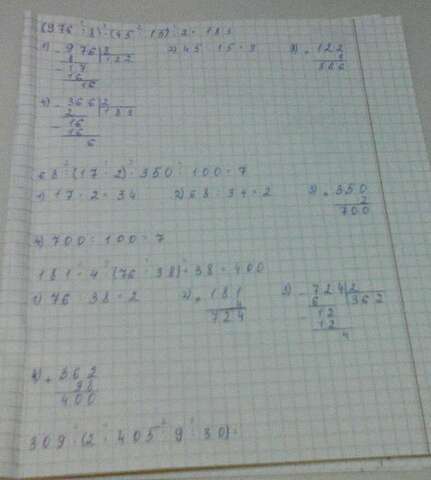 (976 : 8) · (45 : 15) : 2 = 183
1) - 976 | 8 2) 45 : 15 = 3 3) × 122
8 | 122 3
- 17 366
16
16
4) - 366 | 2
2 | 183
- 16
16
6
68 : (17 · 2) · 350 : 100 = 7
1) 17 · 2 = 34 2) 68 : 34 = 2 3) × 350
2
700
4) 700 : 100 = 7
181 · 4 : (76 : 38) + 38 = 400
1) 76 : 38 = 2 2) × 181 3) - 724 | 2
4 6 | 362
724 - 12
12
4
4) + 362
38
400
309 : (2 · 405 : 9 : 30) =